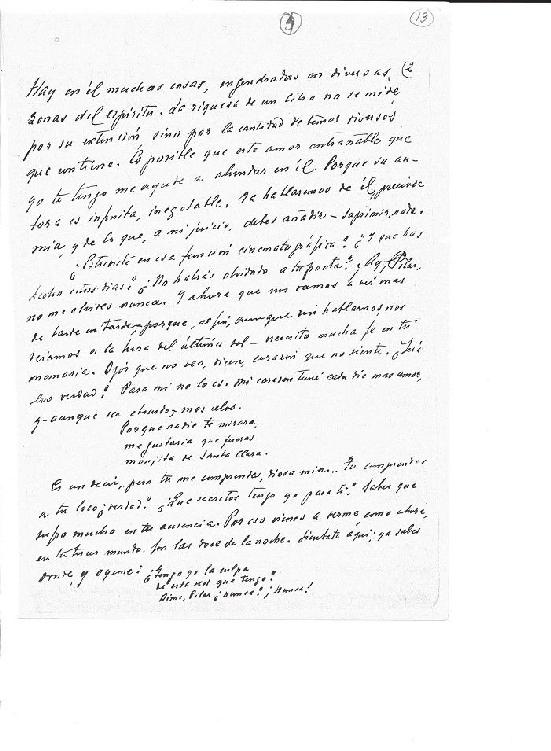 13
Hay en él muchas cosas, engendradas en diversas
zonas del espíritu. La riqueza de un libro no se mide
por su extensión sino por la cantidad de temas diversos
que contiene. Es posible que este amor entrañable que
yo te tengo me ayude a ahondar en él. Porque su
es infinita, inagotable. Ya hablaremos de él,
mía, y de lo que, a mi juicio, debes añadir – suprimir, nada.
¿Estuviste en esa función cinematográfica? ¿Y que has
hecho estos días? ¿No habrás olvidado a tu poeta? ¡Ay, Pilar,
no me olvides nunca. Y ahora que nos vamos a ver mas
de tarde en tarde, porque, al fin, aunque sin hablarnos nos
veíamos a la hora del último sol – necesito mucha fe en tu
memoria. Ojos que no ven, dicen, corazón que no siente. ¿
verdad? Para mí no lo es. Mi corazón tiene cada día mas amor,
y – aunque – mas celos.
Porque nadie te mirara,
me gustaría que fueras
monjita de Santa Clara.
Es un decir, para que me comprendas, diosa mía. Tu comprendes
a tu loco ¿verdad? ¿Que secretos tengo yo para ti? Sabes que
sufro mucho en tu ausencia. Por eso vienes a verme como ahora,
en tercer mundo. Son las doce de la noche. Siéntate aquí; ya sabes
donde, y oyeme:
¿Tengo yo la culpa
de esta sed que tengo?
Dime, Pilar ¿nunca? ¡Nunca!